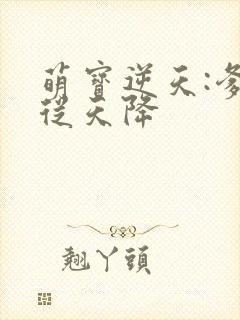 萌寶逆天:
從天降
翹丫頭